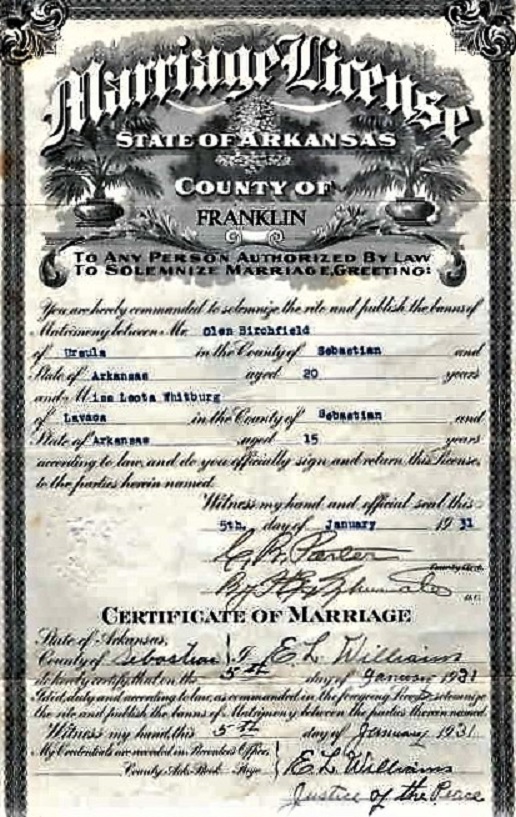 Marriage License
STATE OF ARKANSAS
COUNTY OF
FRANKLIN
TO ANY PERSON AUTHORIZED BY LAW
TO SOLEMNIZE MARRIAGE, GREETING:
You are hereby commanded to solemnize the rite and publish the banns of
Matrimony between Mr. Olen Birchfield
of Ursula in the County of Sebastian and
State of Arkansas aged 20 years
and Miss Leota Whitburg
of Lavaca in the County of Sebastian and
State of Arkansas aged 15 years
according to law, and do you officially sign and return this License
to the parties herein named.
Witness my hand and official seal this
5th. day of January 1931
County Clerk
By D.C.
CERTIFICATE OF MARRIAGE
State of Arkansas,
County of Sebastian } I, E L Williams
do hereby certify, that on the 5th day of January 1931
I did, duly and according to law, as commanded in the foregoing License solemnize
the rite and publish the banns of Matrimony between the parties therein named.
Witness my hand, this 5th day of January 1931.
My Credentials are recorded in Recorders Office,
County Ark. Book Page { E L Williams
Justice of the Peace